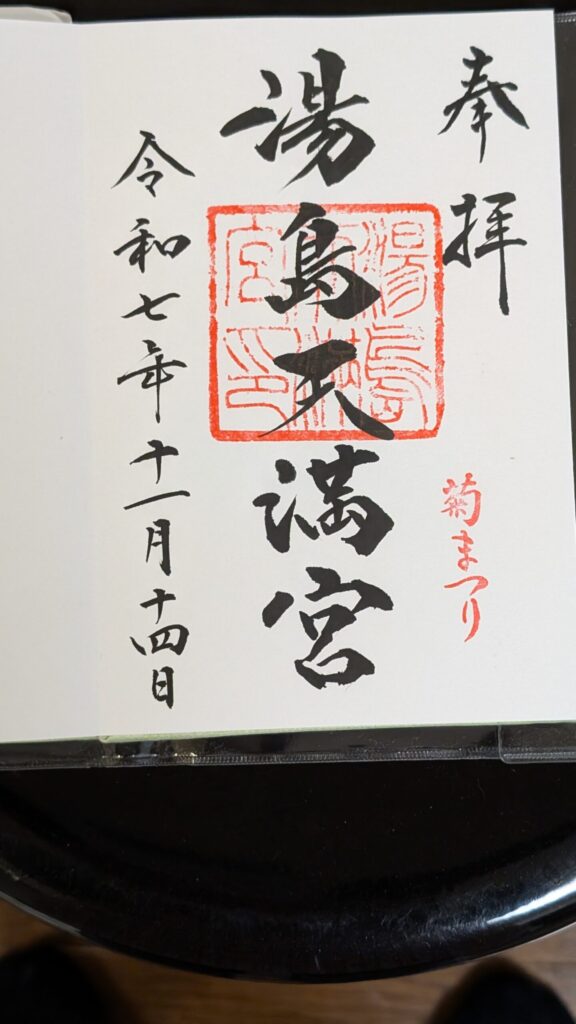 奉拝
菊まつり
湯島天満宮
湯島天満宮印
令和七年十一月十四日